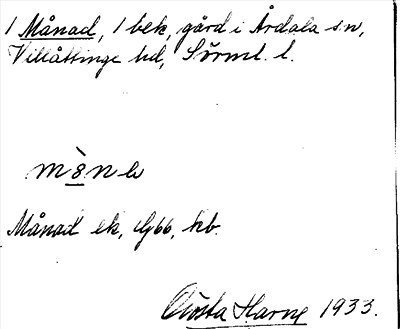 1 Månad, 1 bek, gård i Årdala sn,
Villåttinge hd, Sörml. l.
Månad ek, hb.
Gösta Harne 1933.